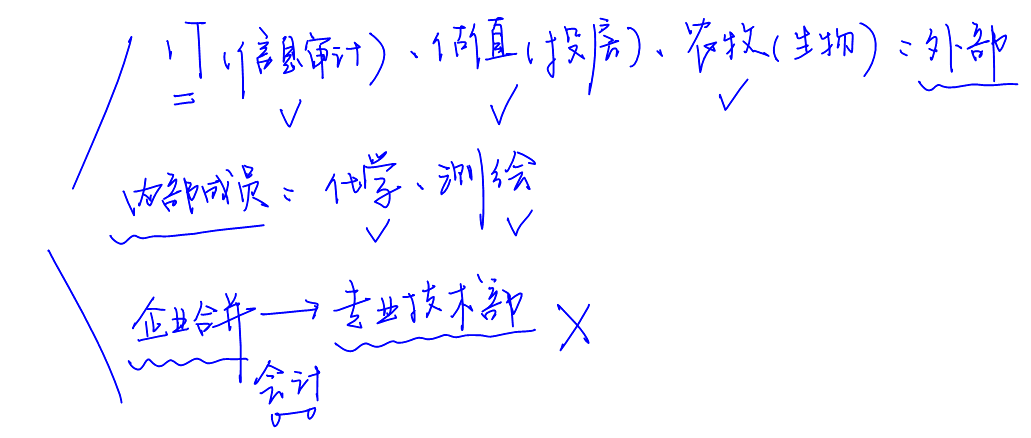 IT(信息审计)、估值(投房)、农牧(生物):外部
内部成员:化学、测绘
企业合并→专业技术部 ×
会计